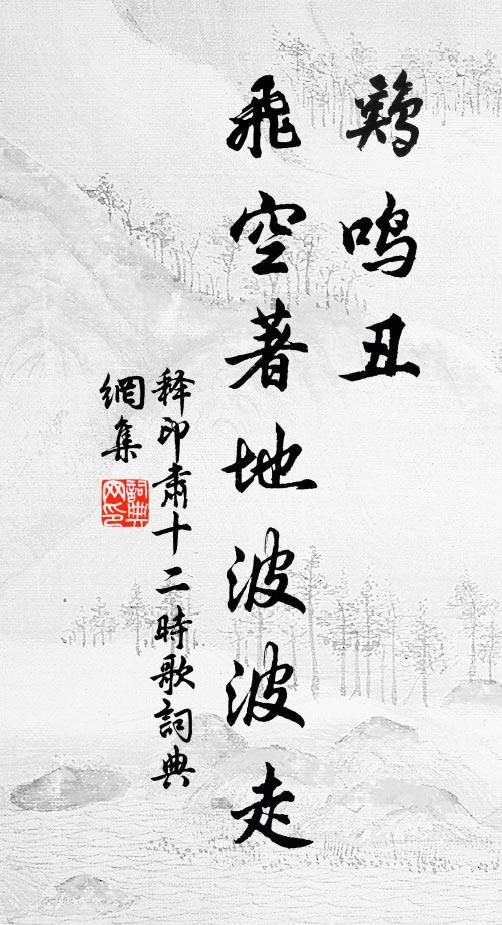 鸡鸣丑
飛空著地波波走
释印肃十二時歌詞典
網集
詞典
网印